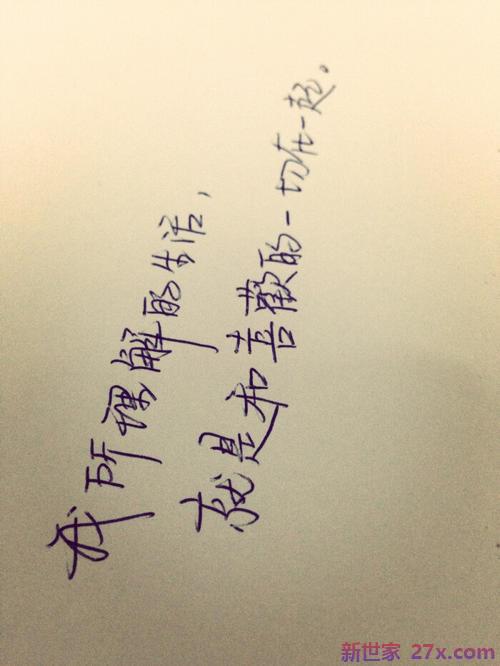 我所理解的生活，
就是和喜歡的一切在一起。
新世家 27x.com